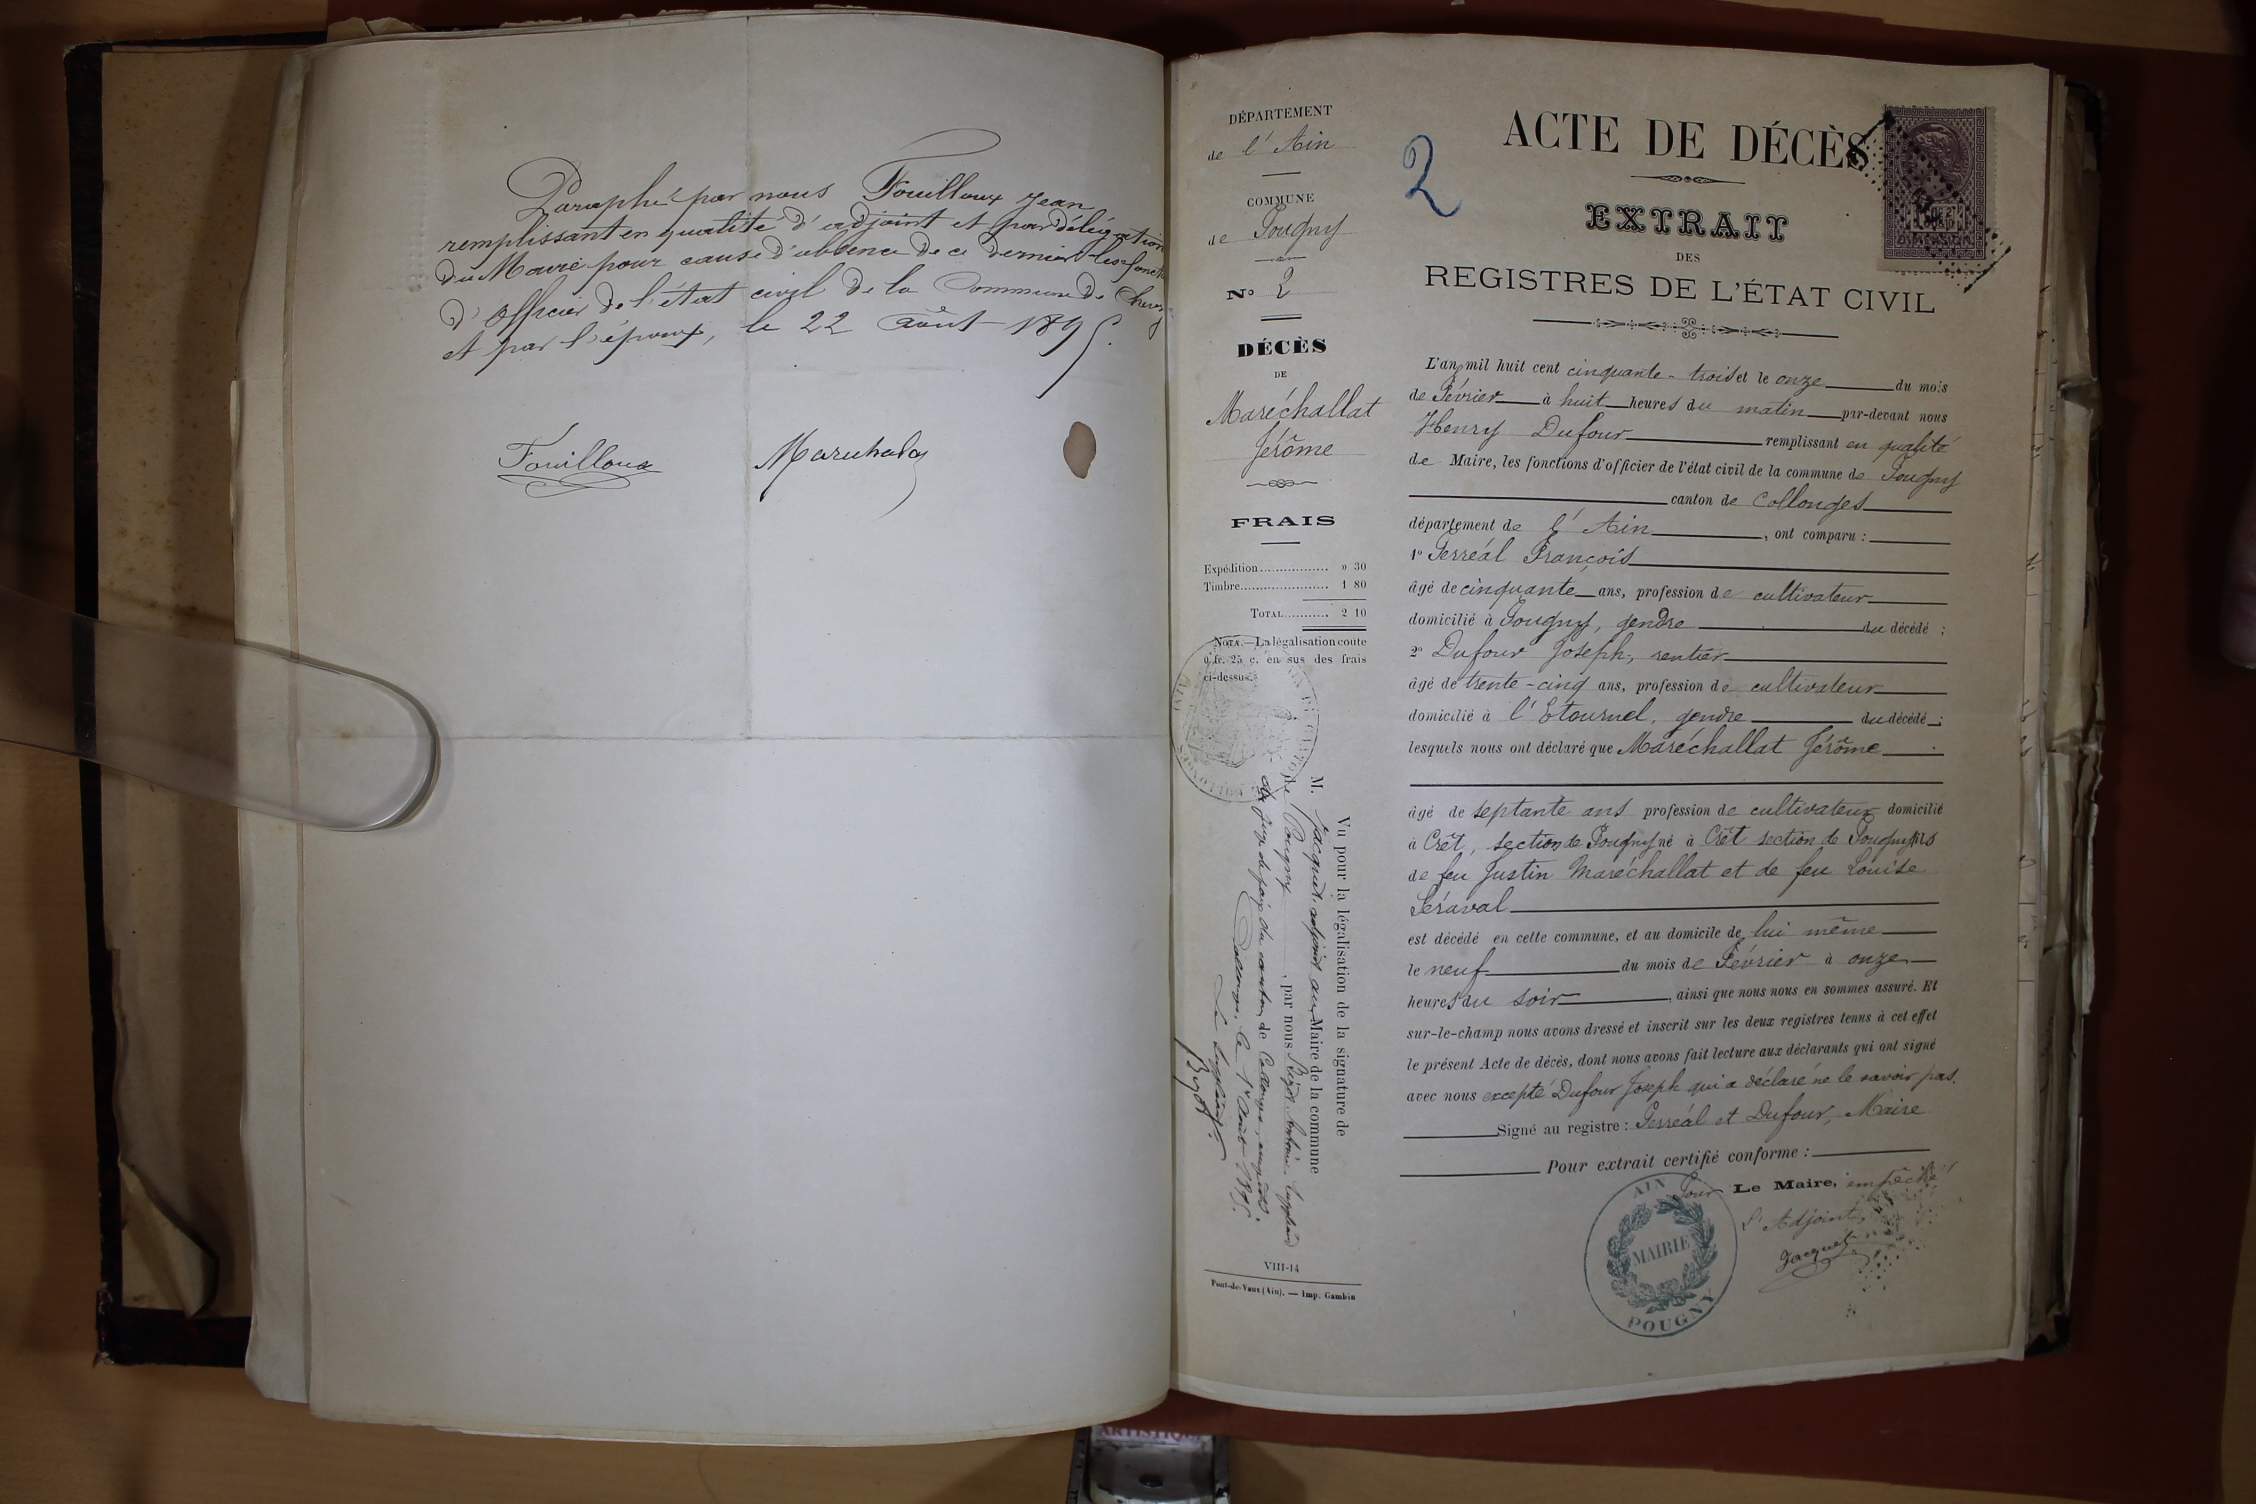 Paraphé par nous Fouilloux Jean
remplissant en qualité d'adjoint et par délégation
du Maire pour cause d'absence de ce dernier les fonct
d'officier de l'état civil de la Commune de
et par l'époux, le 22 août 1895.
Fouilloux
DÉPARTEMENT
de l'Ain
COMMUNE
de Pougny
No 2
DÉCÈS
DE
Maréchallat
Jérôme
FRAIS
Expédition ................ » 30
Timbre ..................... 1 80
TOTAL ........... 2 10
NOTA. — La légalisation coute
0 fr. 25 c. en sus des frais
ci-dessus.
Vu pour la légalisation de la signature de
M. Jacquet, adjoint au Maire de la commune
de Pougny, par nous
juge de paix du canton de Collonges,
Collonges, le 1er Août 1895.
VIII-14
Pont-de-Vaux (Ain). — Imp. Gambin
2
ACTE DE DÉCÈS
EXTRAIT
DES
REGISTRES DE L'ÉTAT CIVIL
L'an mil huit cent cinquante-trois et le onze du mois
de Février à huit heures du matin par-devant nous
Henry Dufour remplissant en qualité
de Maire, les fonctions d'officier de l'état civil de la commune de Pougny
canton de Collonges
département de l'Ain, ont comparu :
1o Perréal François
âgé de cinquante ans, profession de cultivateur
domicilié à Pougny, gendre du décédé ;
2o Dufour Joseph, rentier
âgé de trente-cinq ans, profession de cultivateur
domicilié à l'Etournel, gendre du décédé ;
lesquels nous ont déclaré que Maréchallat Jérôme
âgé de septante ans profession de cultivateur domicilié
à Crêt, section de Pougny né à Crêt section de Pougny fils
de feu Justin Maréchallat et de feu Louise
Séraval
est décédé en cette commune, et au domicile de lui même
le neuf du mois de Février à onze
heures du soir, ainsi que nous nous en sommes assuré. Et
sur-le-champ nous avons dressé et inscrit sur les deux registres tenus à cet effet
le présent Acte de décès, dont nous avons fait lecture aux déclarants qui ont signé
avec nous excepté Dufour Joseph qui a déclaré ne le savoir pas.
Signé au registre : Perréal et Dufour, Maire
Pour extrait certifié conforme :
Pour Le Maire, empêché
L'Adjoint,
Jacquet
AIN
MAIRIE
POUGNY